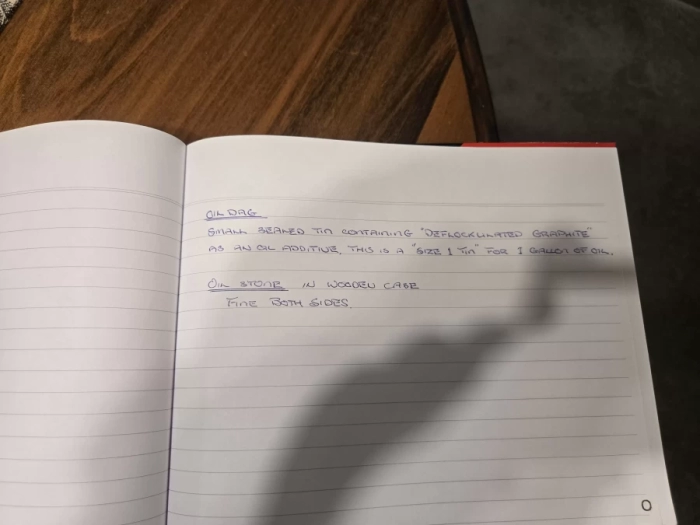 OIL DAG
SMALL SEALED TIN CONTAINING "DEFLOCKULATED GRAPHITE"
AS AN OIL ADDITIVE. THIS IS A "SIZE 1 TIN" FOR 1 GALLON OF OIL.
OIL STONE IN WOODEN CASE
FINE BOTH SIDES.
O